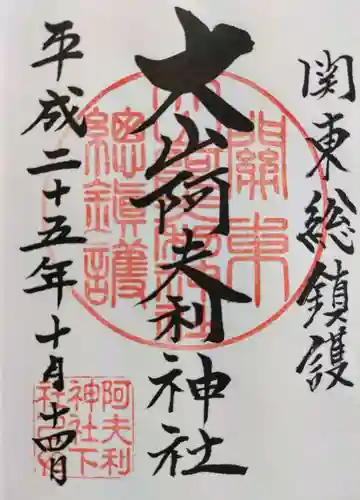 関東総鎮護
大山阿夫利神社
平成二十五年十月十四日
關東
總鎮護
阿夫利
神社下